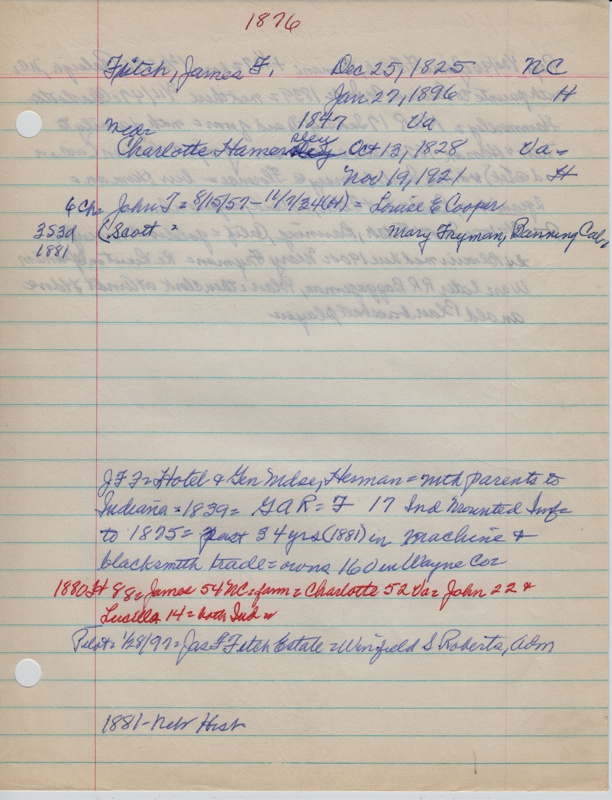 1876
Fitch, James F. Dec 25, 1825 NC
Jan 27, 1896 H
near 1847 Va
Charlotte Hamersley Oct 13, 1828 Va =
Nov 19, 1921 H
6 Ch = John T = 8/15/57 - 11/7/34 (H) = Louise E Cooper
353d (Scott = Mary Fryman, Banning Cal,
1881
JFF = Hotel & Gen Mdse, Herman = with parents to
Indiana = 1839 = GAR = F 17 Ind Mounted Inf =
to 1875 = past 34 yrs (1881) in machine &
blacksmith trade = owns 160 in Wayne Co =
1880 H 88 = James 54 NC = farm = Charlotte 52 Va = John 22 &
Lucilla 14 = both Ind =
Pilot = 1/28/97 = Jas F Fitch Estate = Winfield S Roberts, Adm
1881 - Nebr Hist